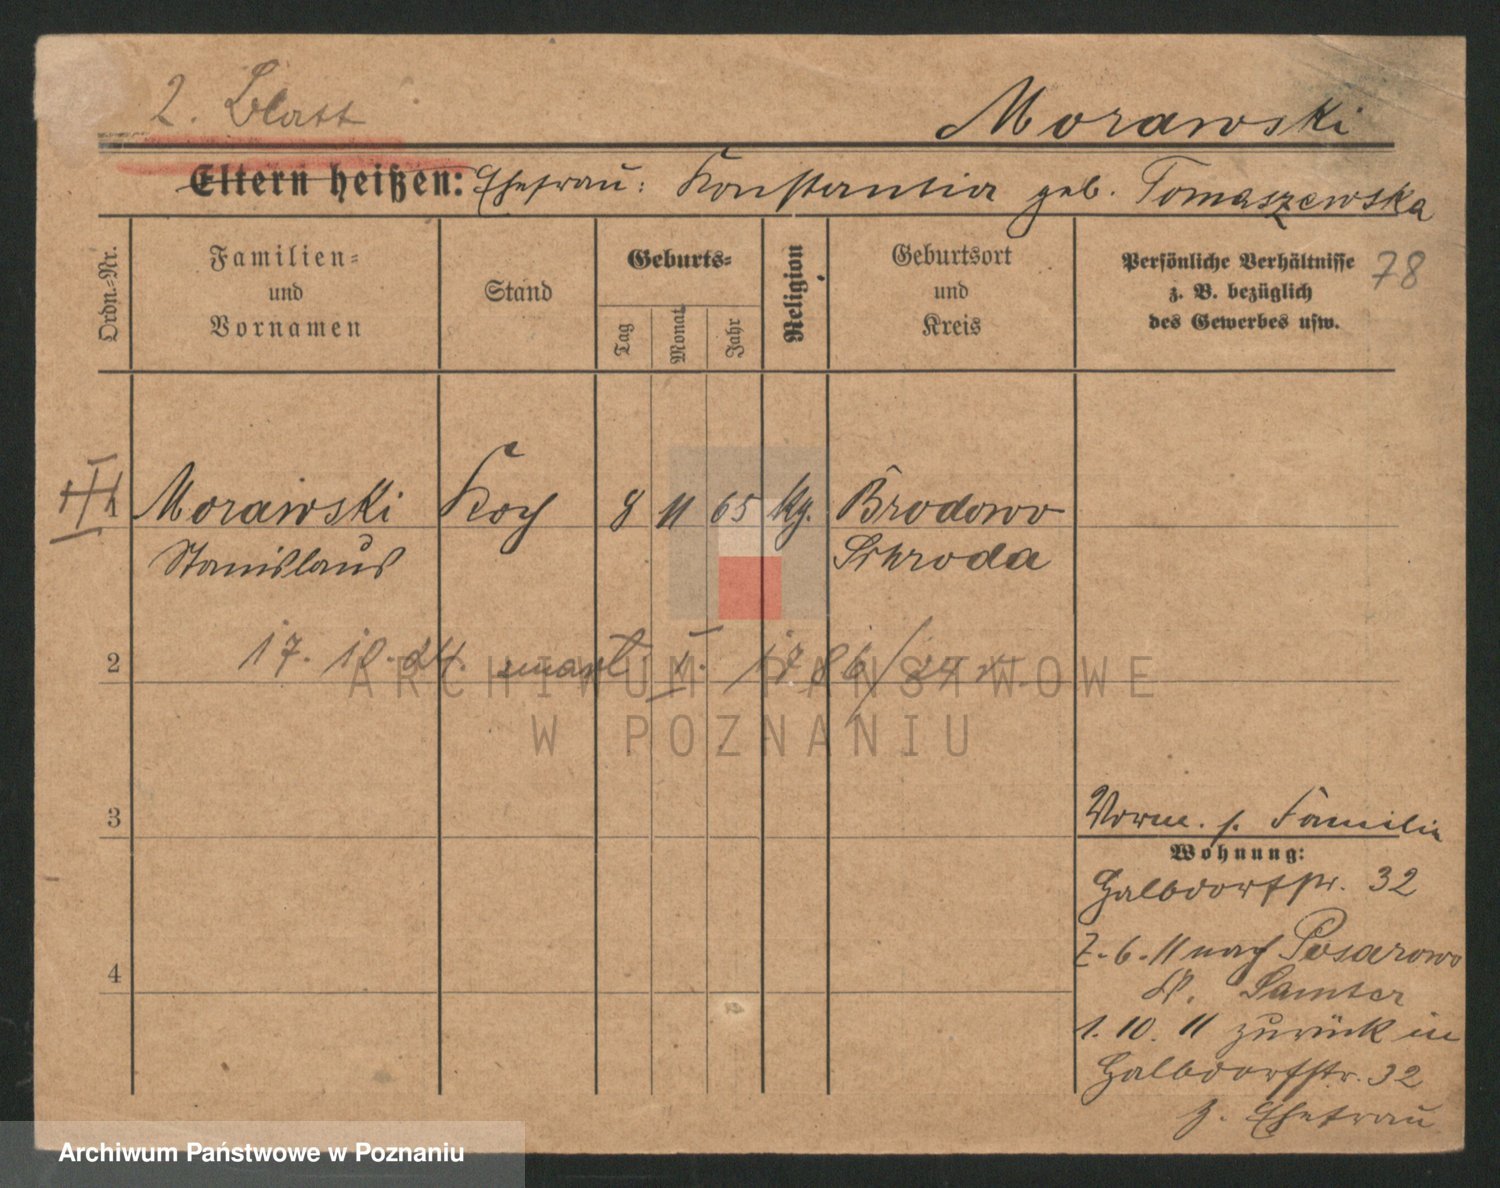 2. Blatt
Morawski
Eltern heißen: Ehefrau: Konstantia geb. Tomaszewska
Ordn.-Nr.
Familien-
und
Vornamen
Stand
Geburts-
Tag
Monat
Jahr
Religion
Geburtsort
und
Kreis
Persönliche Verhältnisse
z. B. bezüglich
des Gewerbes usw.
78
1 Morawski Koch 8 11 65 kg. Brodowo
Stanislaus Schroda
2 17. 10. 24. 1786/24
3
4
Wohnung:
Halbdorfstr. 32
6. 11 nach Posarowo
Kr. Samter
1. 10. 11 zurück in
Halbdorfstr. 32
z. Ehefrau
ARCHIWUM PAŃSTWOWE
W POZNANIU
Archiwum Państwowe w Poznaniu